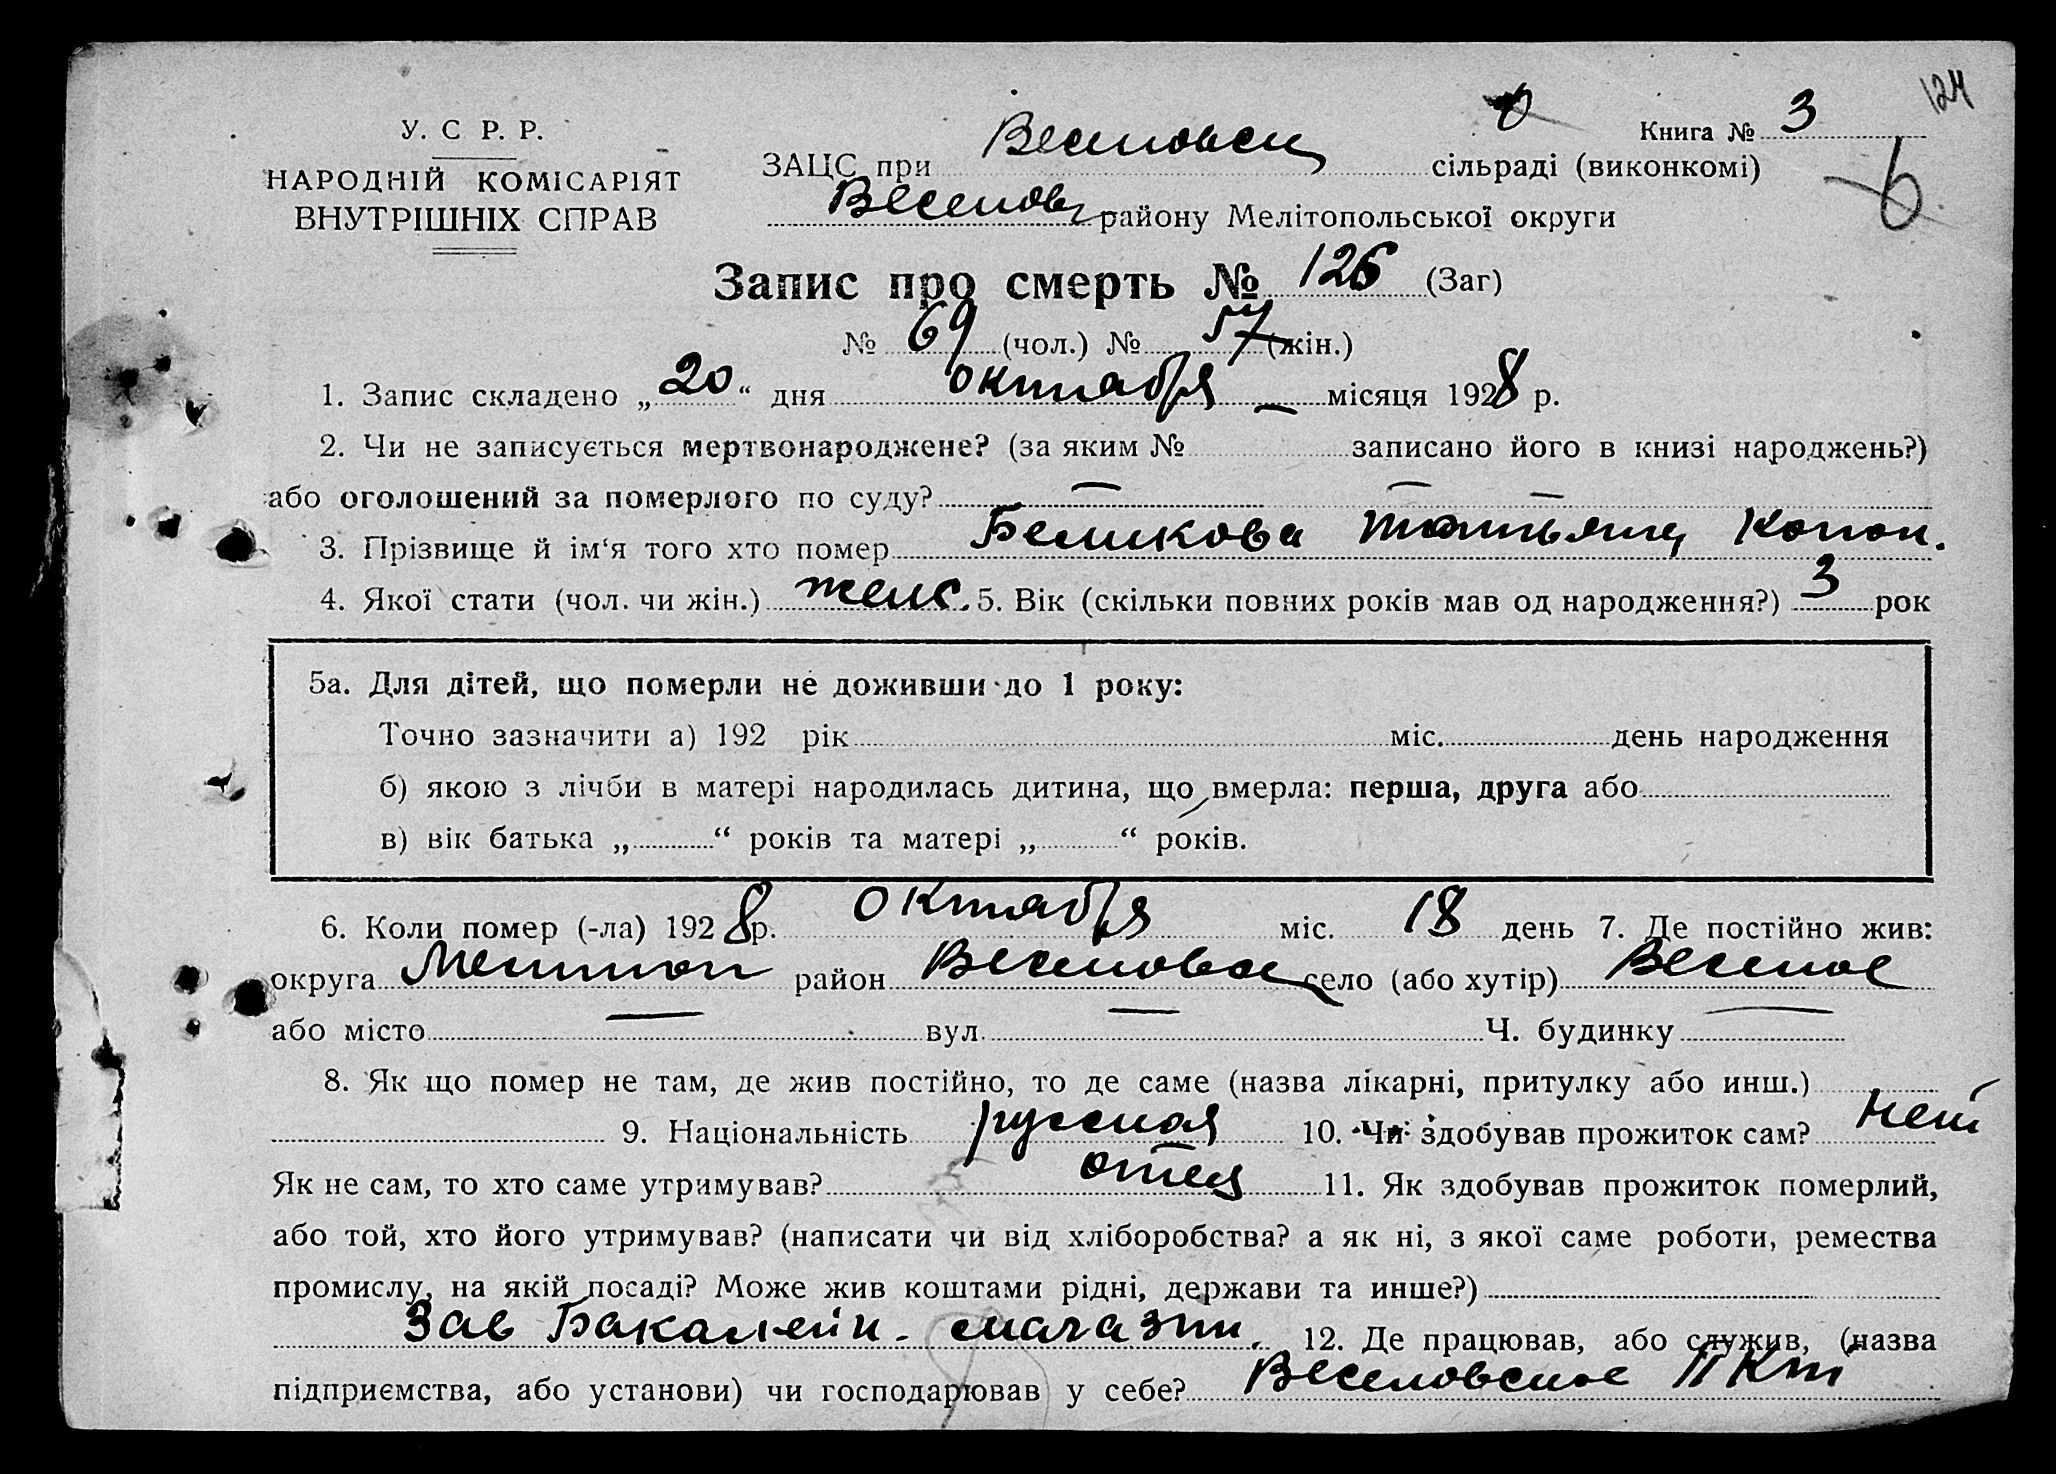 124
У. С Р. Р.
НАРОДНІЙ КОМІСАРІЯТ
ВНУТРІШНІХ СПРАВ
Книга № 3
6
ЗАЦС при Веселовск сільраді (виконкомі)
Веселов району Мелітопольської округи
Запис про смерть № 126 (Заг)
№ 69 (чол.) № 57 (жін.)
1. Запис складено „20“ дня октября місяця 1928 р.
2. Чи не записується мертвонароджене? (за яким № записано його в книзі народжень?)
або оголошений за померлого по суду? —
3. Прізвище й ім‘я того хто помер Беликова Татьяна Конон.
4. Якої стати (чол. чи жін.) женс. 5. Вік (скільки повних років мав од народження?) 3 рок
5а. Для дітей, що померли не доживши до 1 року:
Точно зазначити а) 192 рік міс. день народження
б) якою з лічби в матері народилась дитина, що вмерла: перша, друга або
в) вік батька „ “ років та матері „ “ років.
6. Коли помер (-ла) 1928 р. октября міс. 18 день 7. Де постійно жив:
округа Мелитоп район Веселовск село (або хутір) Веселое
або місто — вул. — Ч. будинку —
8. Як що помер не там, де жив постійно, то де саме (назва лікарні, притулку або инш.)
9. Національність русская 10. Чи здобував прожиток сам? Нет
Як не сам, то хто саме утримував? отец 11. Як здобував прожиток померлий,
або той, хто його утримував? (написати чи від хліборобства? а як ні, з якої саме роботи, ремества
промислу, на якій посаді? Може жив коштами рідні, держави та инше?)
Зав Бакалейн. магазин. 12. Де працював, або служив, (назва
підприємства, або установи) чи господарював у себе? Веселовское ПКт